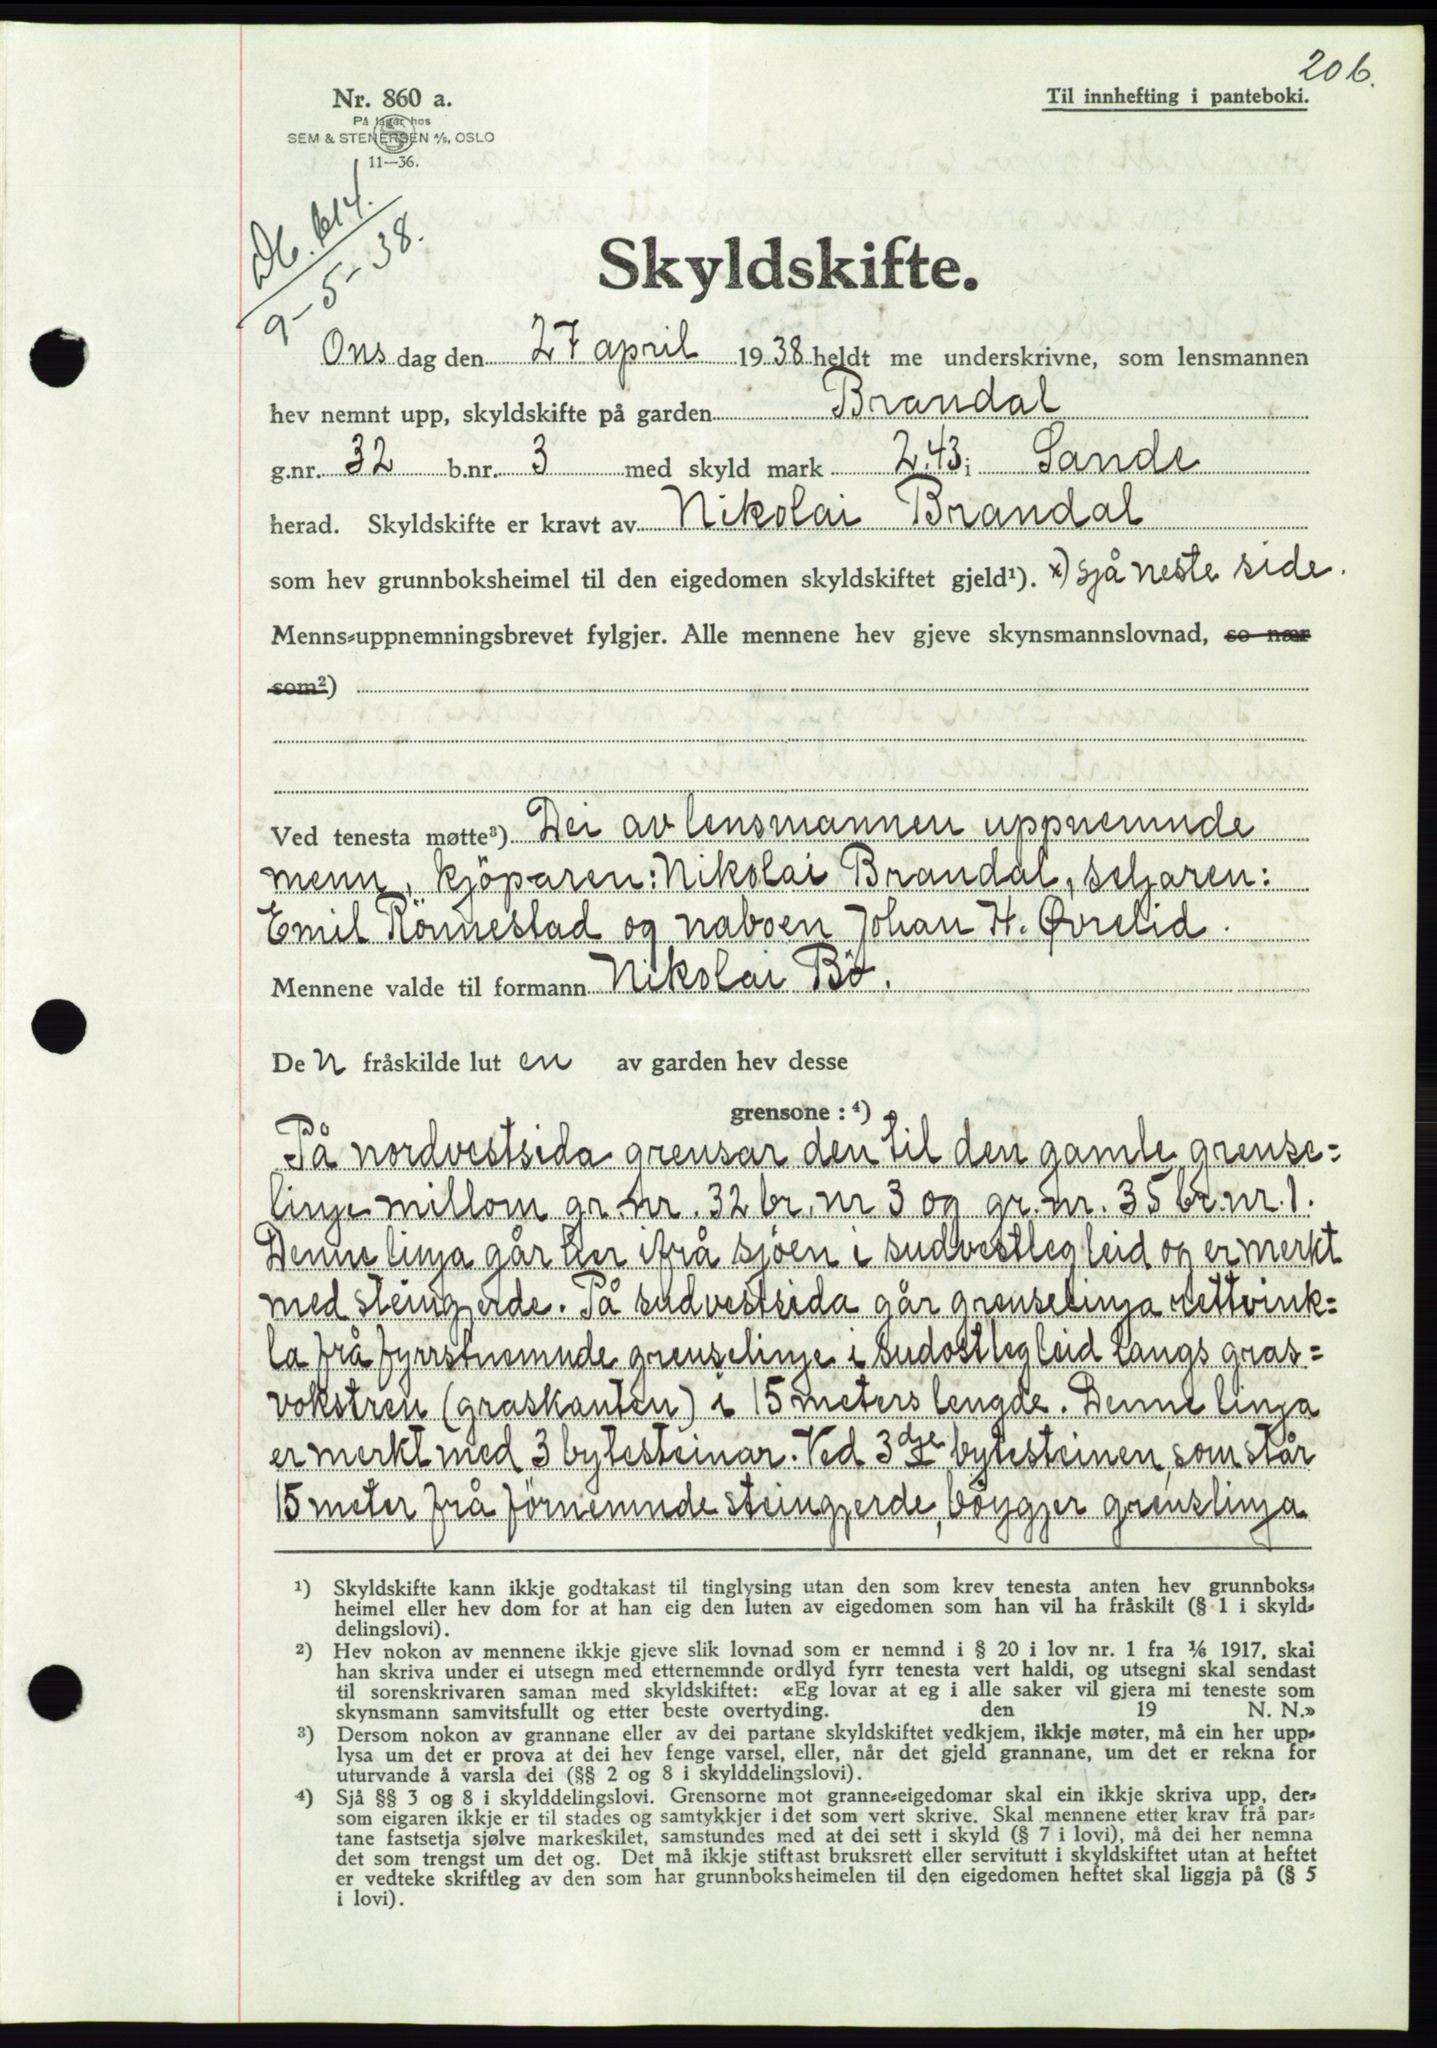 206.
Nr. 860 a.
Til innhefting i panteboki.
På lager hos
SEM & STENERSEN A/S, OSLO
11-36.
Db. 614.
9-5-38.
Skyldskifte.
Ons dag den 27 april 1938 heldt me underskrivne, som lensmannen
hev nemnt upp, skyldskifte på garden Brandal
g.nr. 32 b.nr. 3 med skyld mark 2.43 i Sande
herad. Skyldskifte er kravt av Nikolai Brandal
som hev grunnboksheimel til den eigedomen skyldskiftet gjeld¹). x) sjå neste side.
Menns-uppnemningsbrevet fylgjer. Alle mennene hev gjeve skynsmannslovnad, so nær
som²)
Ved tenesta møtte³) Dei av lensmannen uppnemnde
menn, kjöparen: Nikolai Brandal, seljaren:
Emil Rönnestad og naboen Johan H. Øvrelid.
Mennene valde til formann Nikolai Bö.
De n fråskilde lut en av garden hev desse
grensone: ⁴)
På nordvestsida grensar den til den gamle grense=
linje millom gr. nr. 32 br. nr 3 og gr. nr. 35 br. nr. 1.
Denne linja går her ifrå sjöen i sudvestleg leid og er merkt
med steingjerde. På sudvestsida går grenselinja rettvink=
la frå fyrrstnemnde grenselinje i sudostleg leid langs gras=
vokstren (graskanten) i 15 meters lengde. Denne linja
er merkt med 3 bytesteinar. Ved 3dje bytesteinen, som står
15 meter frå förnemnde steingjerde, böygjer grenslinja
¹) Skyldskifte kann ikkje godtakast til tinglysing utan den som krev tenesta anten hev grunnboks-
heimel eller hev dom for at han eig den luten av eigedomen som han vil ha fråskilt (§ 1 i skyld-
delingslovi).
²) Hev nokon av mennene ikkje gjeve slik lovnad som er nemnd i § 20 i lov nr. 1 fra 1/6 1917, skal
han skriva under ei utsegn med etternemnde ordlyd fyrr tenesta vert haldi, og utsegni skal sendast
til sorenskrivaren saman med skyldskiftet: «Eg lovar at eg i alle saker vil gjera mi teneste som
skynsmann samvitsfullt og etter beste overtyding. den 19 N. N.»
³) Dersom nokon av grannane eller av dei partane skyldskiftet vedkjem, ikkje møter, må ein her upp-
lysa um det er prova at dei hev fenge varsel, eller, når det gjeld grannane, um det er rekna for
uturvande å varsla dei (§§ 2 og 8 i skylddelingslovi).
⁴) Sjå §§ 3 og 8 i skylddelingslovi. Grensorne mot granne-eigedomar skal ein ikkje skriva upp, der-
som eigaren ikkje er til stades og samtykkjer i det som vert skrive. Skal mennene etter krav frå par-
tane fastsetja sjølve markeskilet, samstundes med at dei sett i skyld (§ 7 i lovi), må dei her nemna
det som trengst um det og. Det må ikkje stiftast bruksrett eller servitutt i skyldskiftet utan at heftet
er vedteke skriftleg av den som har grunnboksheimelen til den eigedomen heftet skal liggja på (§ 5
i lovi).